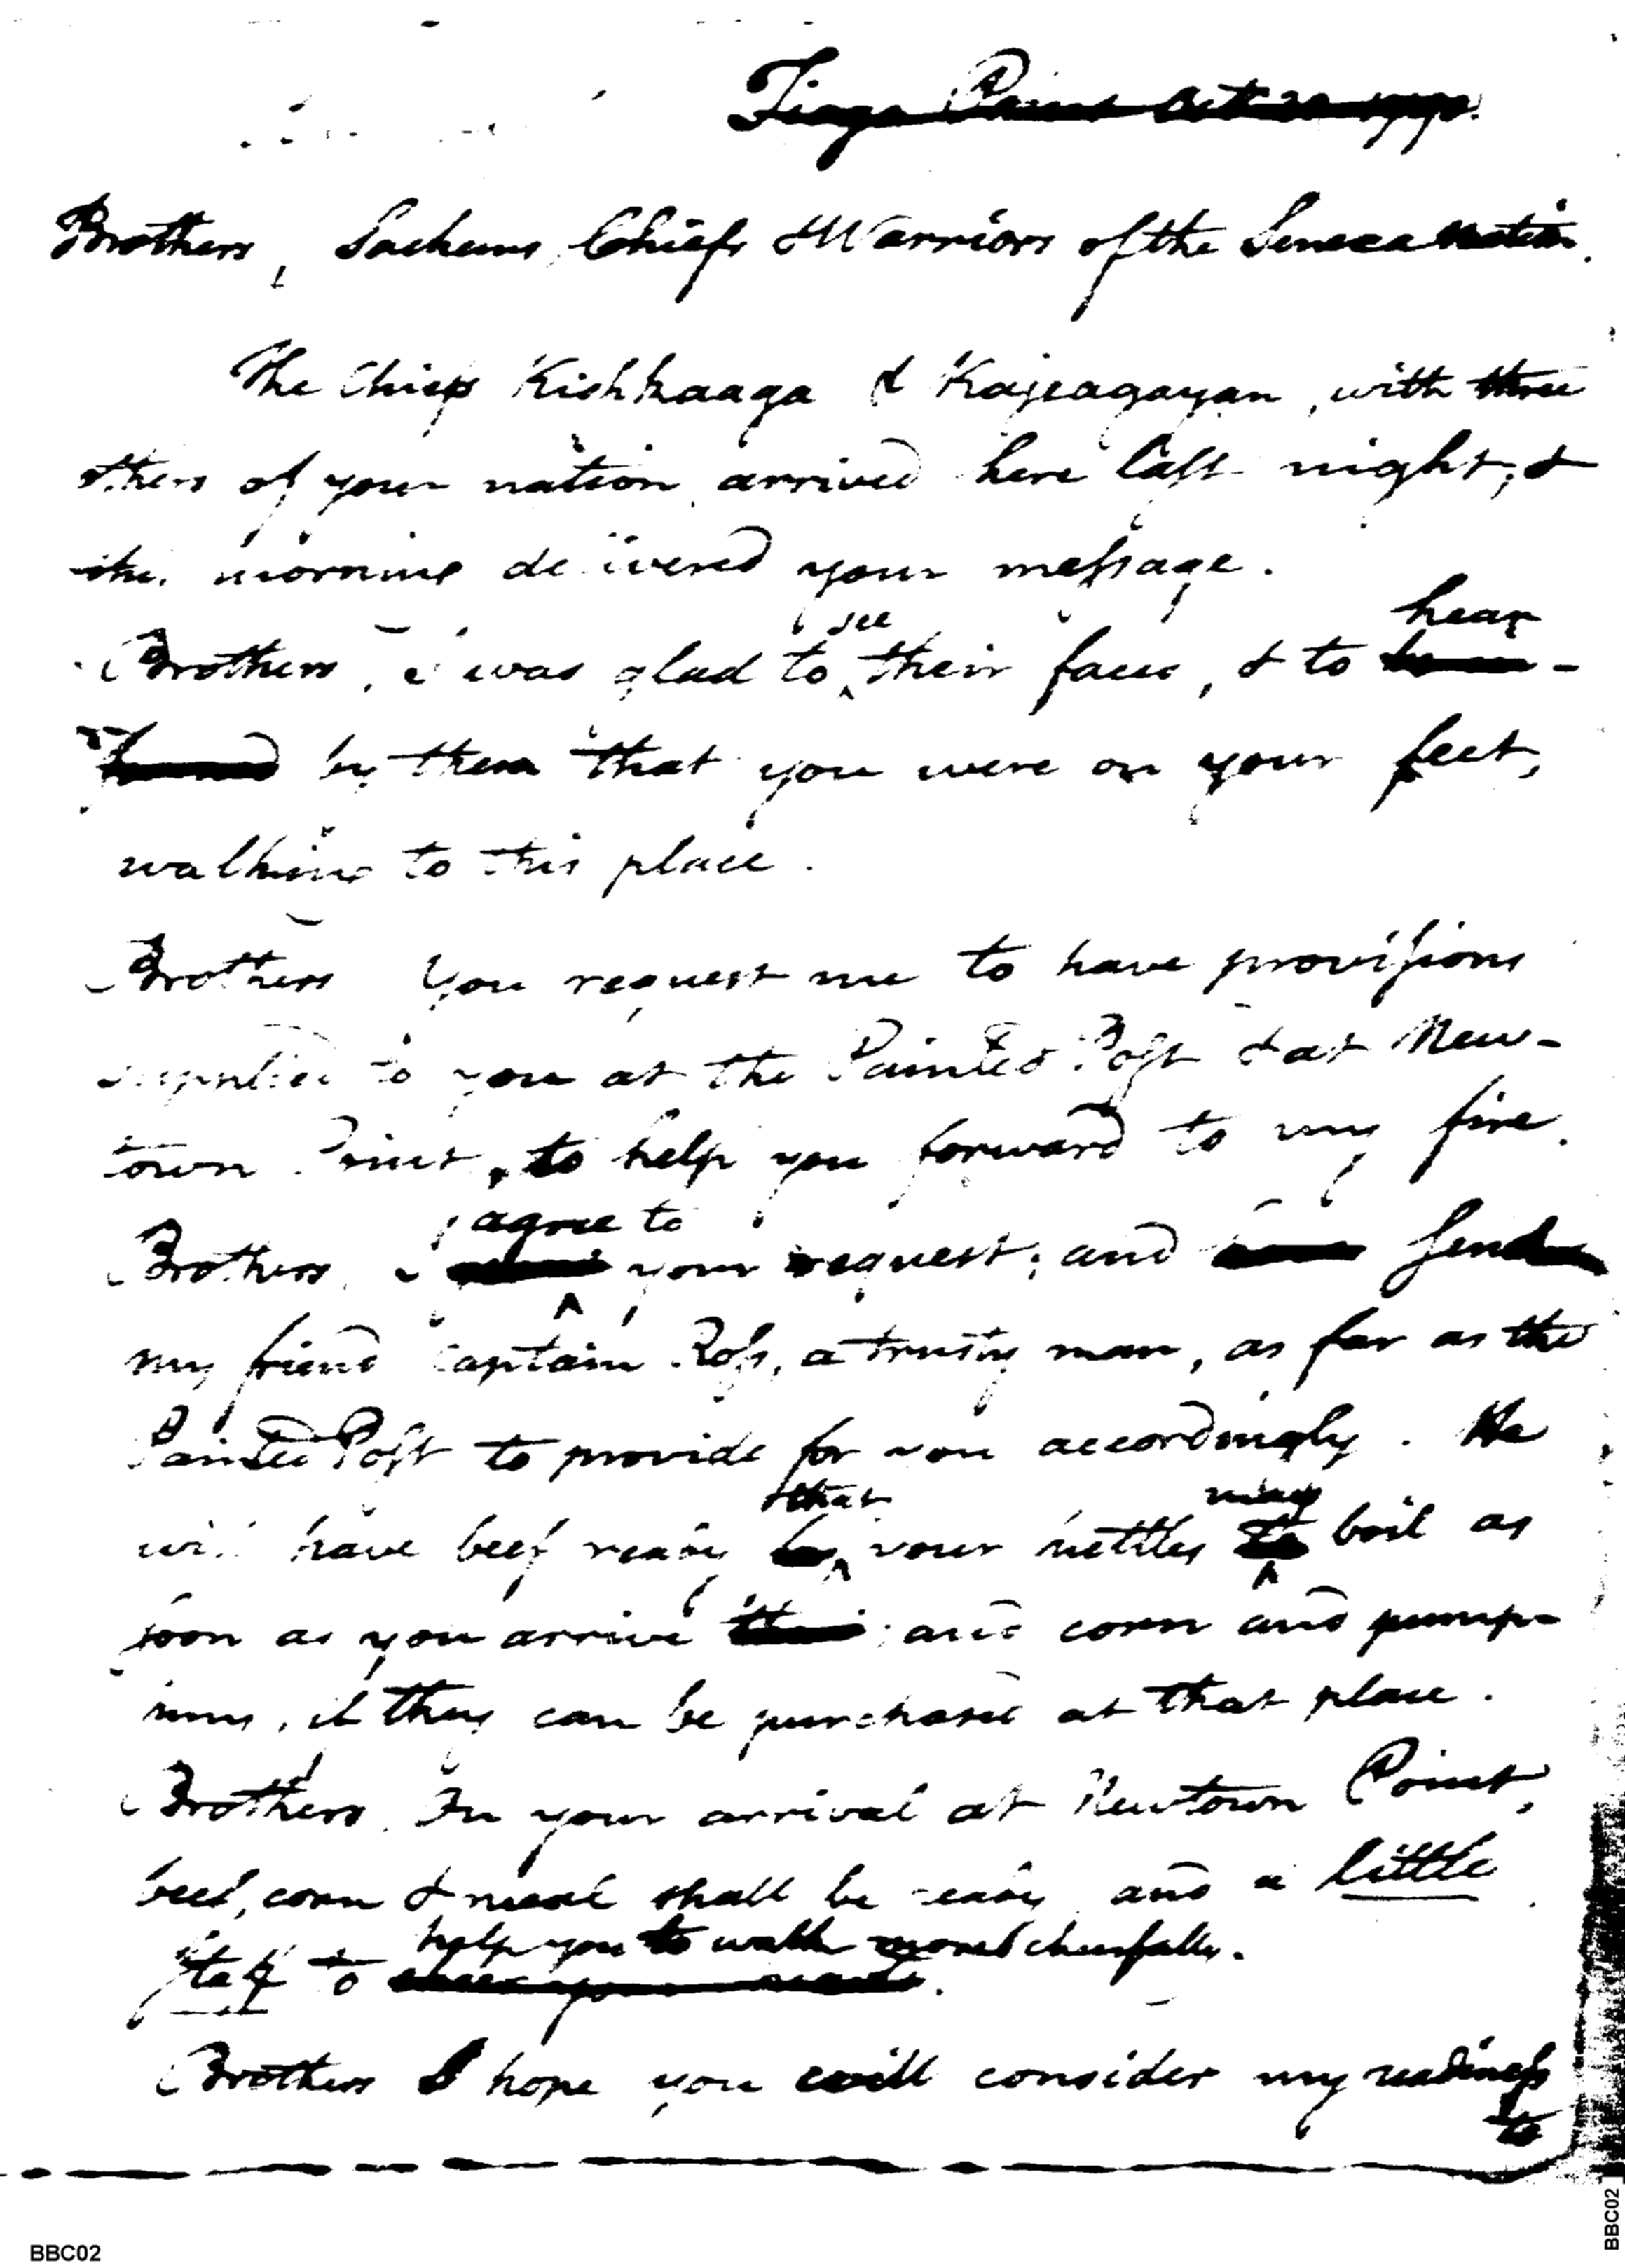 Tioga Point Oct 30 1790.
Brothers, Sachems, Chiefs & Warriors of the Seneca Nation.
The Chiefs Kishkaaga & Kajeagayan, with three
others of your nation arrived here last night; &
this morning delivered your message.
Brothers, I was glad to see their faces, & to hear
by them that you were on your feet,
walking to this place.
Brothers You request me to have provisions
supplied to you at the Painted Post & at New-
town Point, to help you forward to my fire.
Brothers, I agree to your request; and send
my friend Captain Ross, a trusty man, as far as the
Painted Post to provide for you accordingly. He
will have beef ready that your kettles may boil as
soon as you arrive; and corn and pump-
kins, if they can be purchased at that place.
Brothers. On your arrival at Newtown Point,
beef, corn & meal shall be ready and a little
staff to help you to walk more cheerfully.
Brothers I hope you will consider my readiness
to
BBC02
BBC02